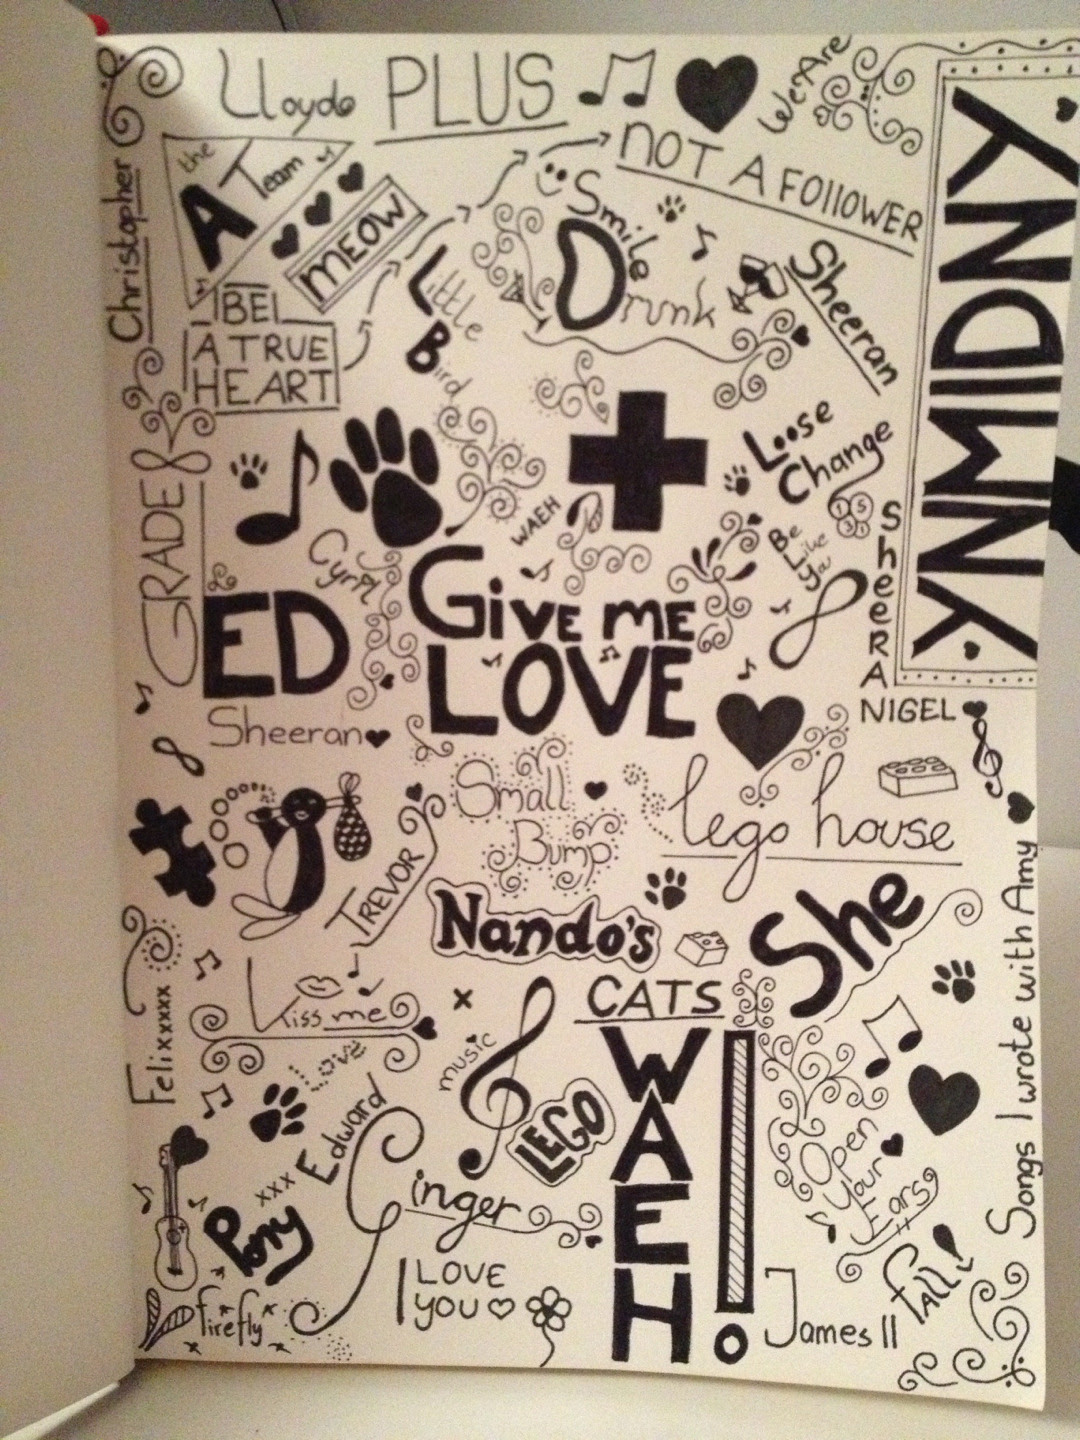 Lloyds
PLUS
We Are
the
A Team
Christopher
MEOW
NOT A FOllOWER
Smile
Drunk
Sheeran
YNMIDNY
1 BEL
A TRUE
HEART
Little
Bird
Loose
Change
GRADE 8
WAEH
Cyril
Be
Like
You
SheeRA
NIGEL
ED
Sheeran
GivE ME
LOVE
Small
Bump
lego house
TREVOR
Nando's
She
Songs I wrote with Amy
Felixxxxx
Kiss me
x
CATS
music
Love
Edward
LEGO
WAEH!
Open
Your
Ears
xxx
Pony
Ginger
firefly
I LOVE
YOU
James II
fall!